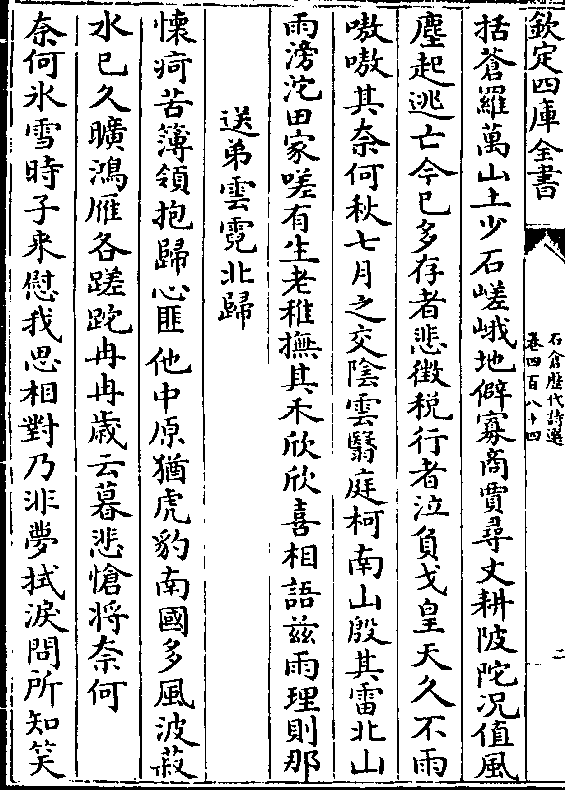 欽定四庫全書
石倉歷代詩選
卷四百八十四
二
括蒼羅萬山土少石嵯峨地僻寡商賈尋丈耕陂陀况值風
塵起逃亡今已多存者悲徵税行者泣負戈皇天久不雨
嗷嗷其奈何秋七月之交陰雲翳庭柯南山殷其雷北山
雨滂沱田家嗟有生老稚撫其禾欣欣喜相語兹雨理則那
送弟雲霓北歸
懷痾苦簿領抱歸心匪他中原猶虎豹南國多風波菽
水已久曠鴻雁各蹉跎冉冉歳云暮悲愴将奈何
奈何氷雪時子来慰我思相對乃非夢拭淚問所知笑